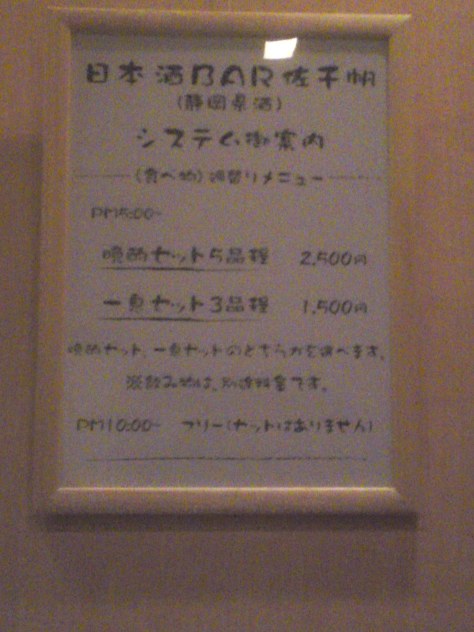 日本酒BAR佐千帆
(静岡県酒)
システム御案内
(食べ物)日替りメニュー
PM5:00~
晩酌セット5品程 2,500円
一息セット3品程 1,500円
晩酌セット、一息セットのどちらかを選べます。
※飲み物は、別途料金です。
PM10:00~ フリー(セットはありません)